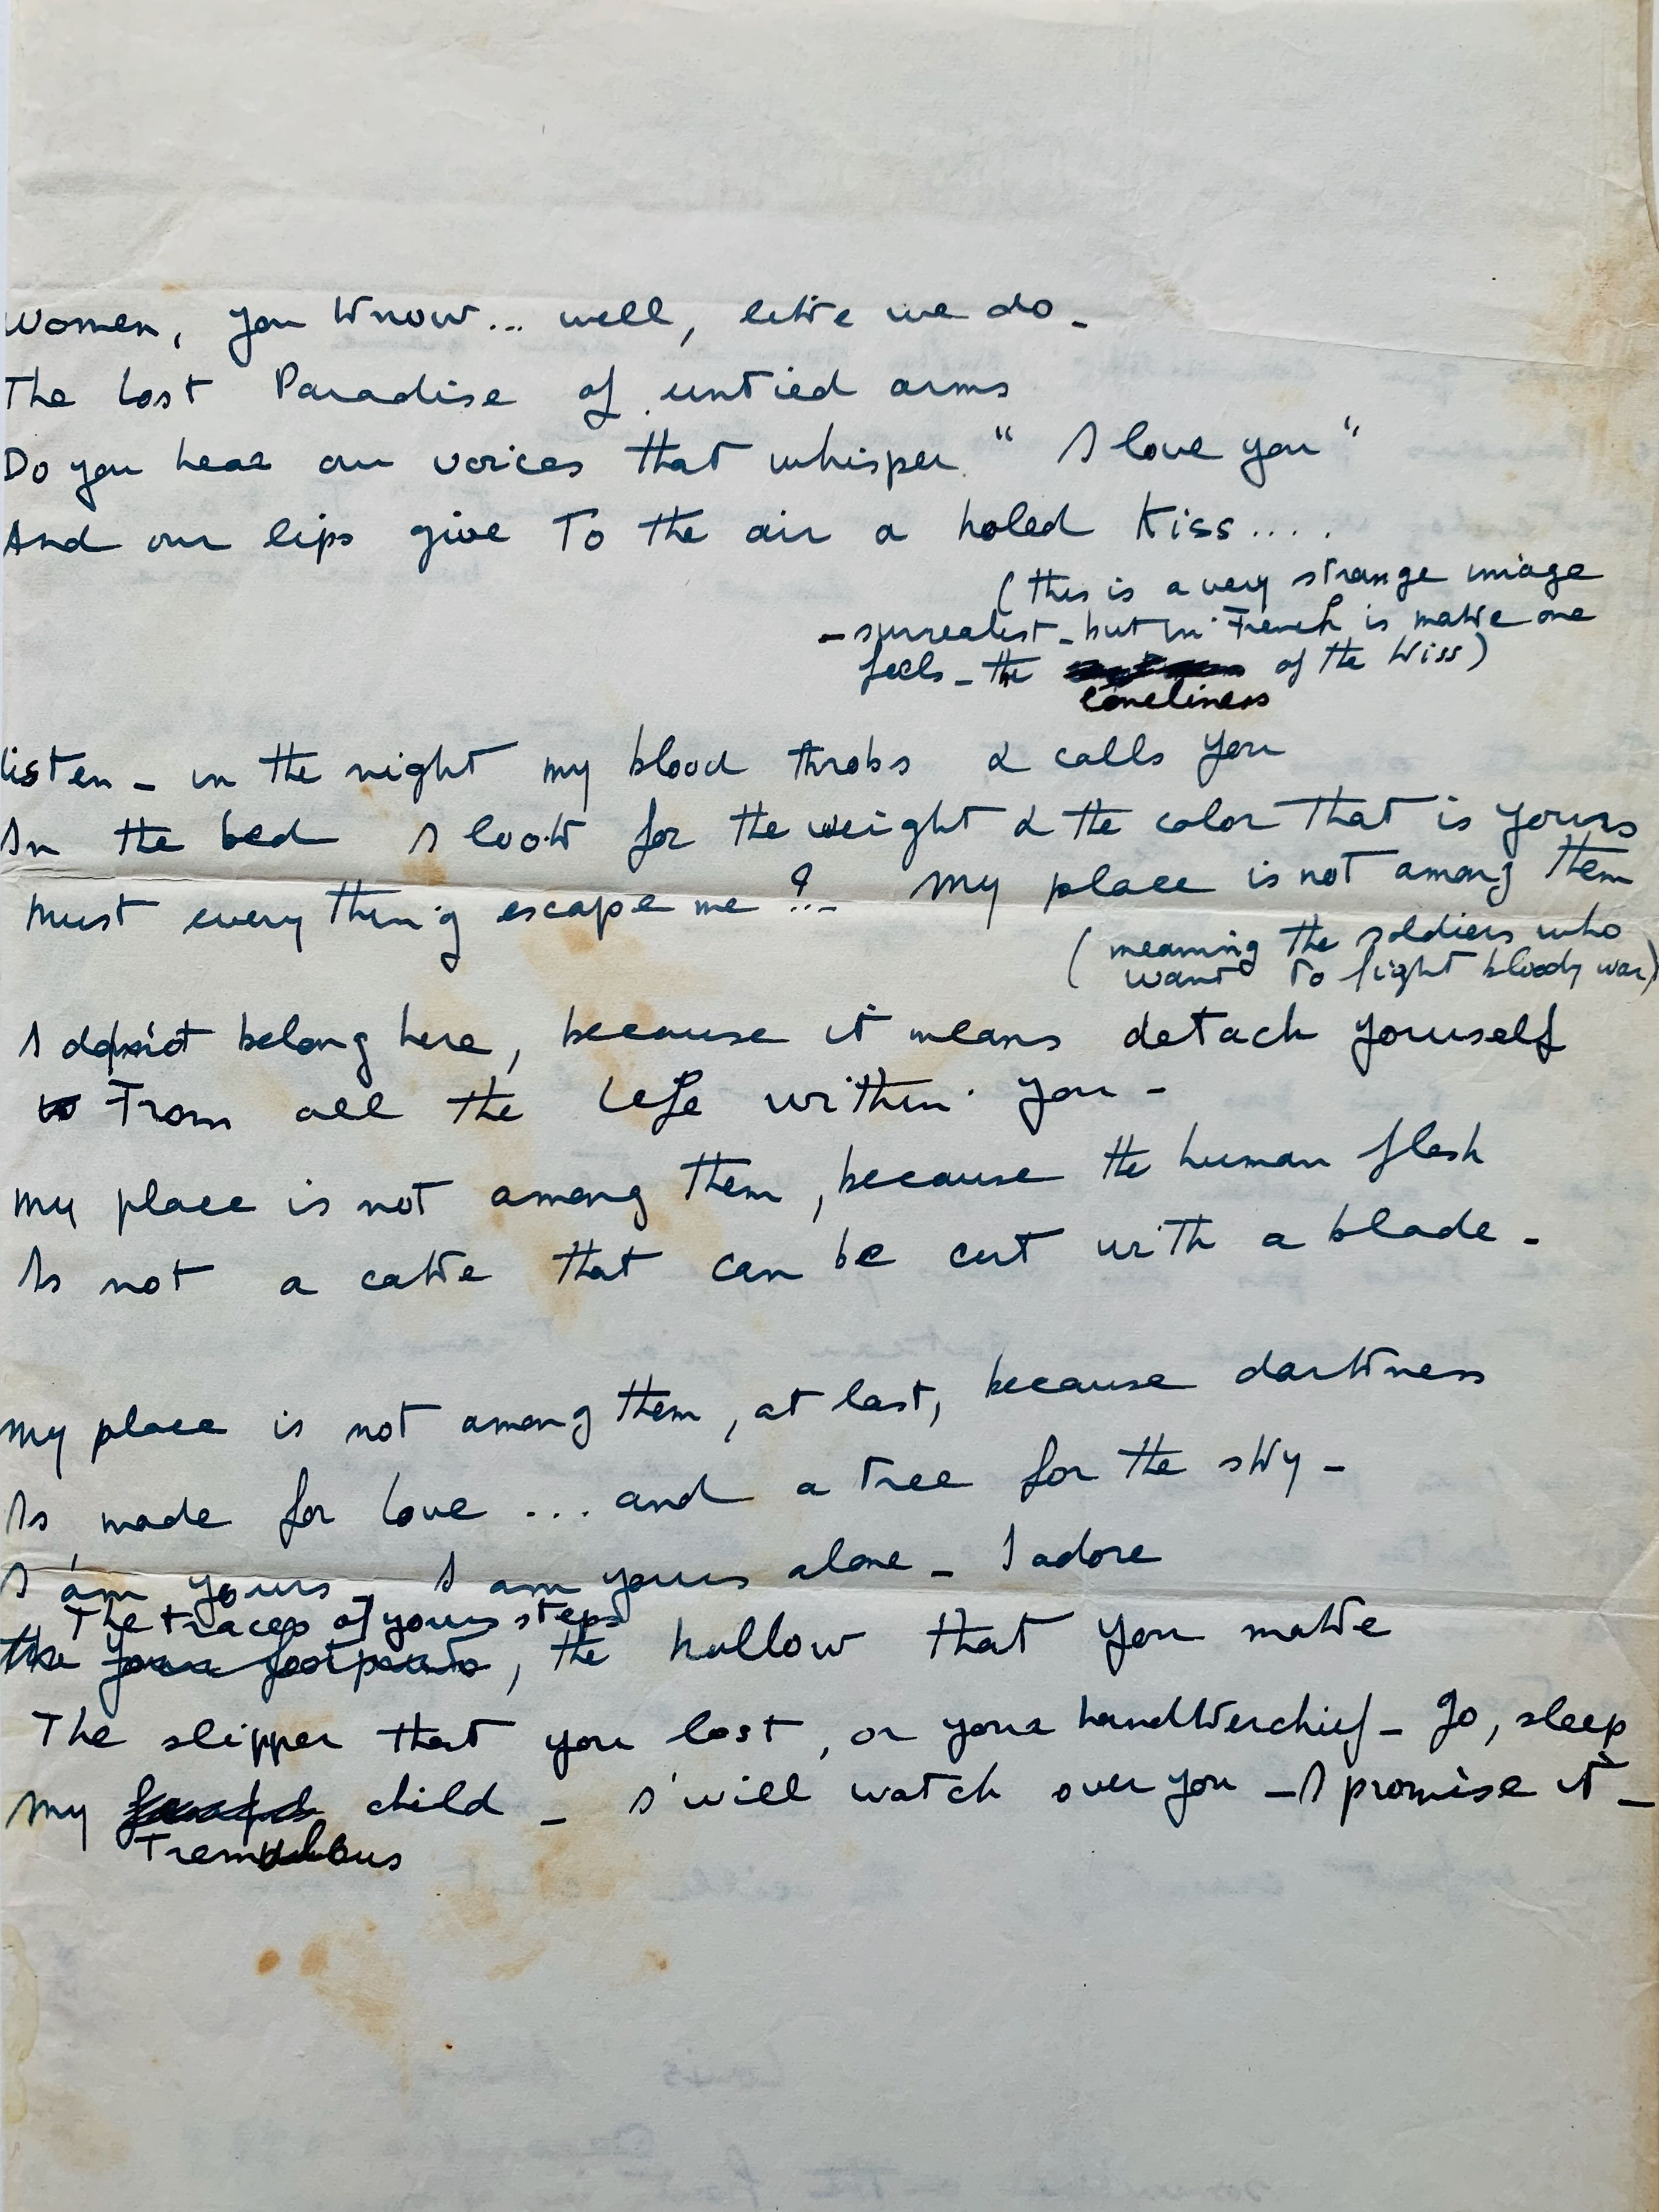 Women, you know... well, like we do -
The lost Paradise of untied arms
Do you hear our voices that whisper " I love you "
And our lips give To the air a holed Kiss....
( this is a very strange image
- surrealist - but in French is make one
feels - the of the kiss)
loneliness
listen - in the night my blood throbs & calls you
In the bed I look for the weight & the color that is yours
Must every thing escape me ?!.. My place is not among them
( meaning the soldiers who
want to fight bloody war)
I don't belong here, because it means detach yourself
From all the life within you -
My place is not among them, because the human flesh
Is not a cake that can be cut with a blade -
My place is not among them, at last, because darkness
Is made for love ... and a tree for the sky -
I am yours - I am yours alone - I adore
The traces of yours steps
the footprints, the hollow that you make
The slipper that you lost, or your handkerchief - Go, sleep
My child - I will watch over you - I promise it -
Tremulous